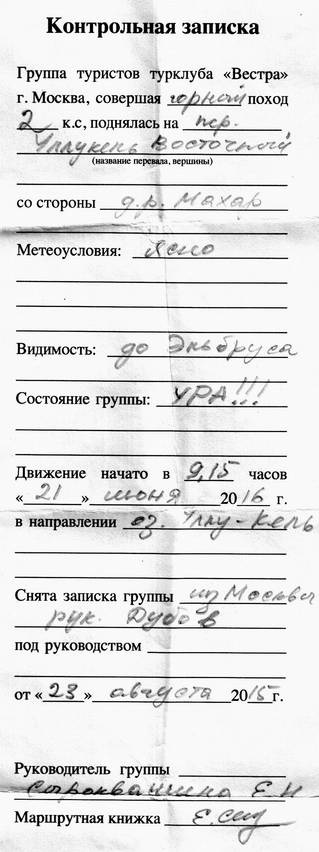 Контрольная записка
Группа туристов турклуба «Вестра»
г. Москва, совершая горный поход
2 к.с, поднялась на пер.
Уллукель Восточный
(название перевала, вершины)
со стороны д.р. Махар
Метеоусловия: Ясно
Видимость: до Эльбруса
Состояние группы: УРА!!!
Движение начато в 9,15 часов
«21» июня 2016 г.
в направлении оз. Уллу-Кель
Снята записка группы из Москвы
рук. Дубов
под руководством
от «23» августа 2015г.
Руководитель группы
Е.Н
Маршрутная книжка